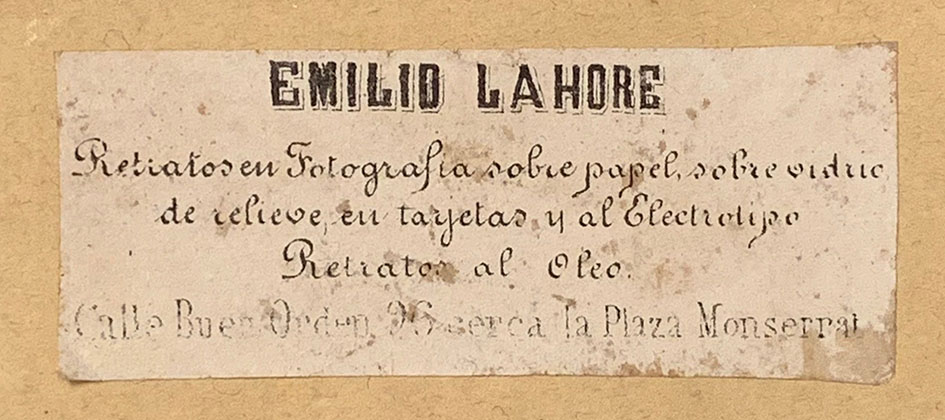 EMILIO LAHORE
Retratos en Fotografía sobre papel, sobre vidrio
de relieve, en tarjetas y al Electrotipo
Retratos al Oleo.
Calle Buen Orden, 96 cerca la Plaza Monserrat